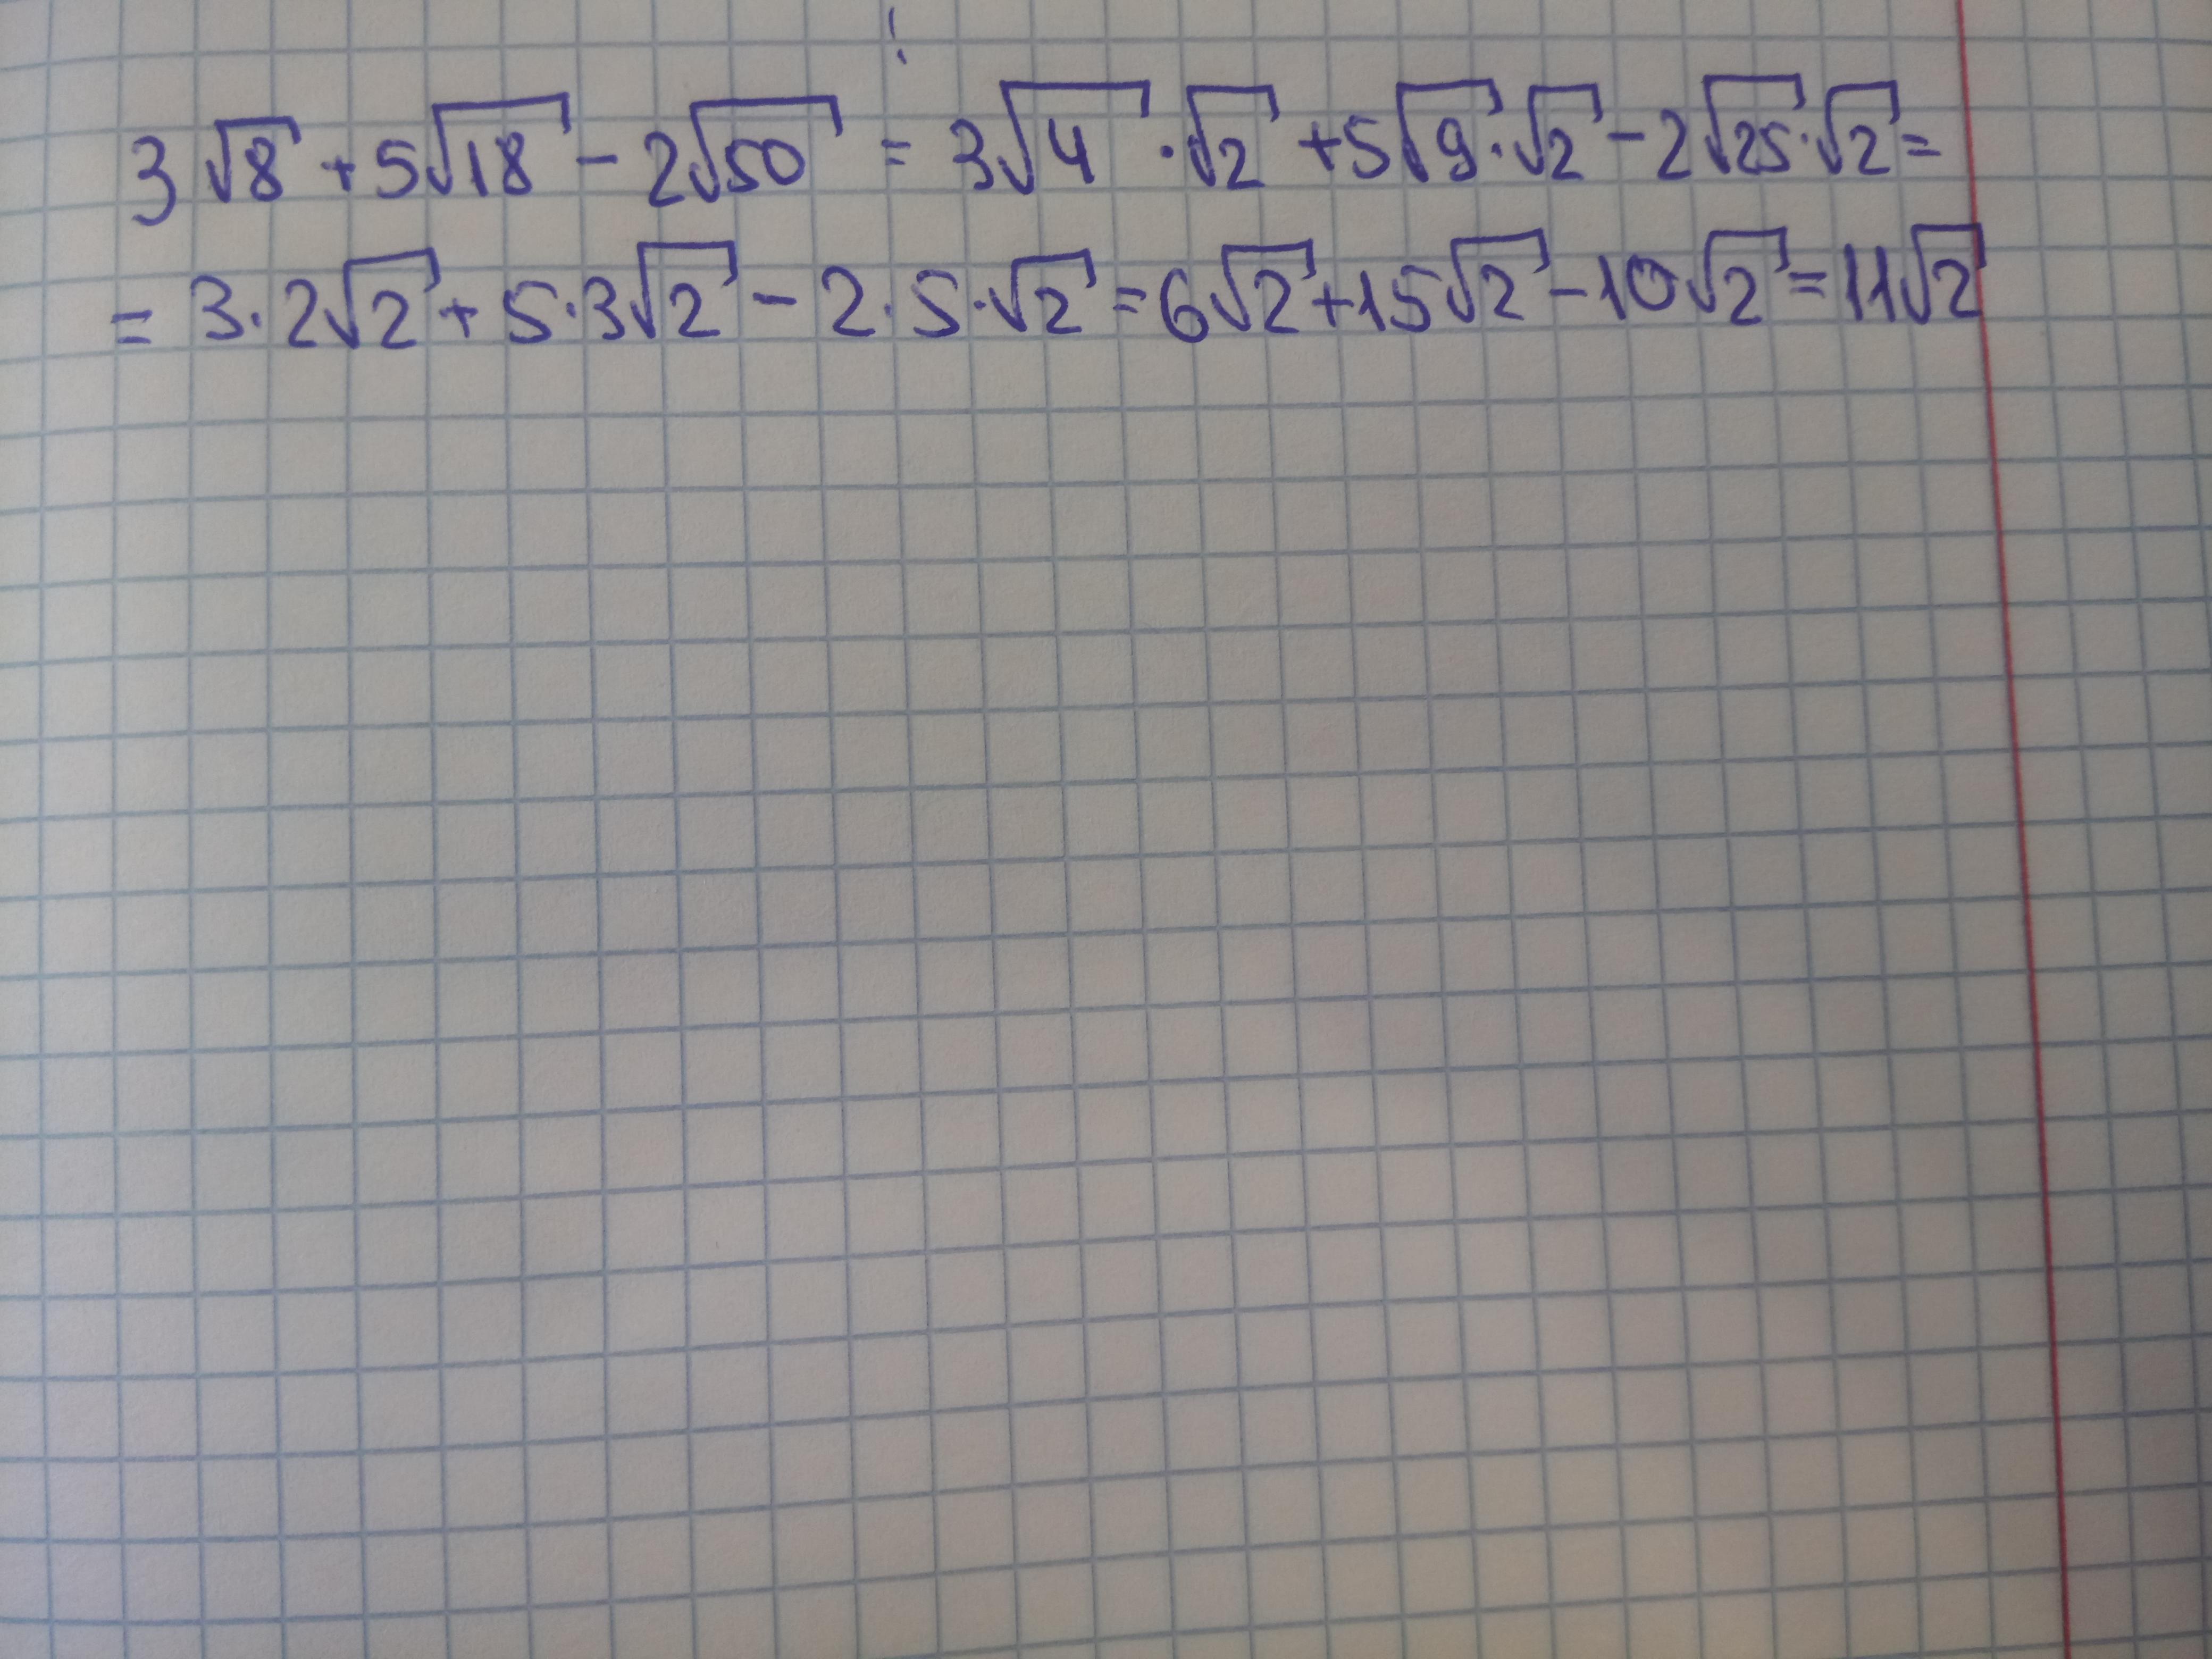 3√8 + 5√18 - 2√50 = 3√4 · √2 + 5√9 · √2 - 2√25 · √2 =
= 3 · 2√2 + 5 · 3√2 - 2 · 5 · √2 = 6√2 + 15√2 - 10√2 = 11√2